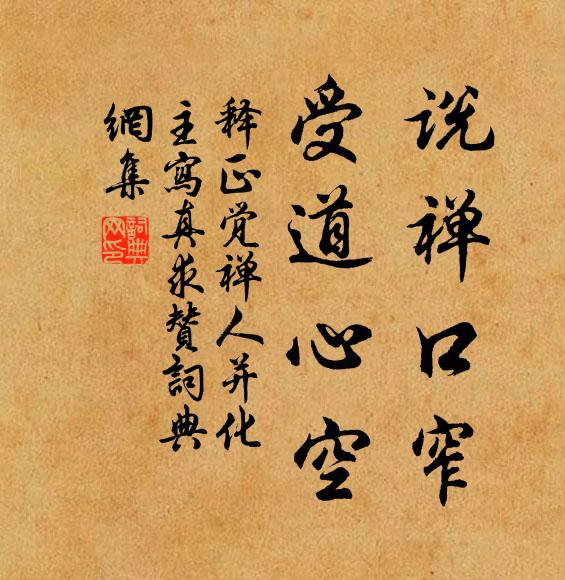 说禅口窄
受道心空
释正觉禅人并化
主寫真求贊詞典
網集
詞典
网印